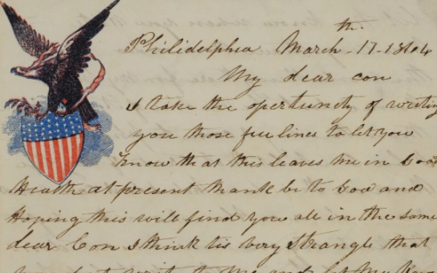 th
Philidelphia March-17-1864
My dear con
I take the opertunity of writing
you those few lines to let you
know that this leaves me in Good
Health at present thank be to God and
Hoping this will find you all in the same
dear Con I think tis very Strange that
to me and